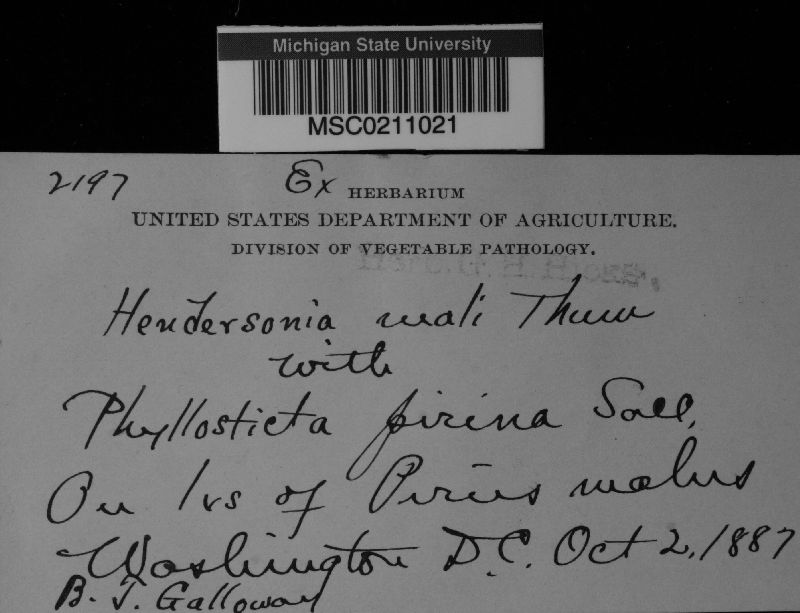 Michigan State University
MSC0211021
2197 Ex HERBARIUM
UNITED STATES DEPARTMENT OF AGRICULTURE.
DIVISION OF VEGETABLE PATHOLOGY.
Hendersonia mali Thum
with
Phyllosticta pirina Sacc.
On lvs of Pirus malus
Washington D.C. Oct 2, 1887
B. T. Galloway